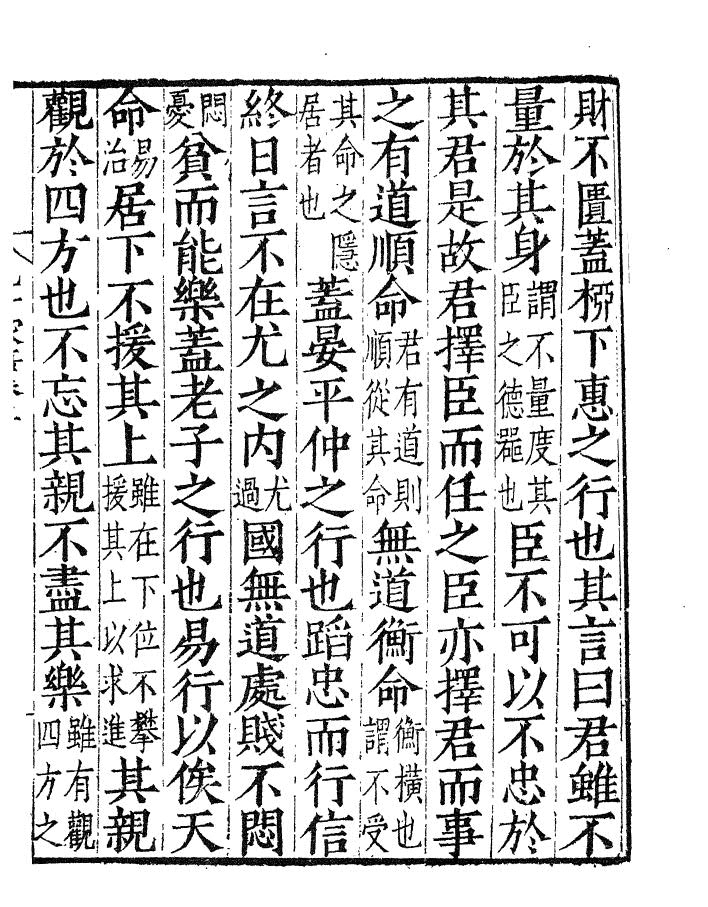 財不匱蓋栁下惠之行也其言曰君雖不
量於其身謂不量度其臣之德器也臣不可以不忠於
其君是故君擇臣而任之臣亦擇君而事
之有道順命君有道則順從其命無道衡命衡橫也謂不受
其命之隱居者也蓋晏平仲之行也蹈忠而行信
終日言不在尤之内尤過國無道處賤不悶
悶憂貧而能樂蓋老子之行也易行以俟天
命易治居下不援其上雖在下位不攀援其上以求進其親
觀於四方也不忘其親不盡其樂雖有觀四方之